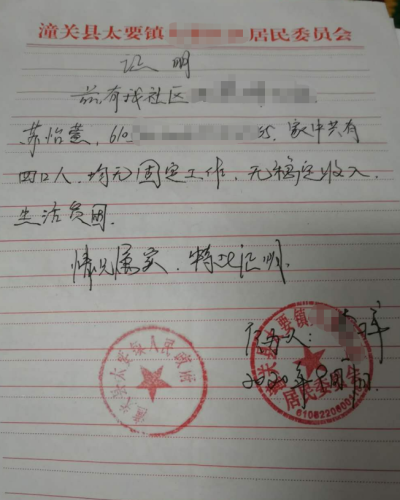 潼关县太要镇 居民委员会
证明
兹有我社区
苏怡萱，610 55，家中共有
四口人，均无固定工作，无稳定收入，
生活贫困。
情况属实，特此证明。
潼关县太要镇人民政府
潼关县太要镇 居民委员会
6106220800